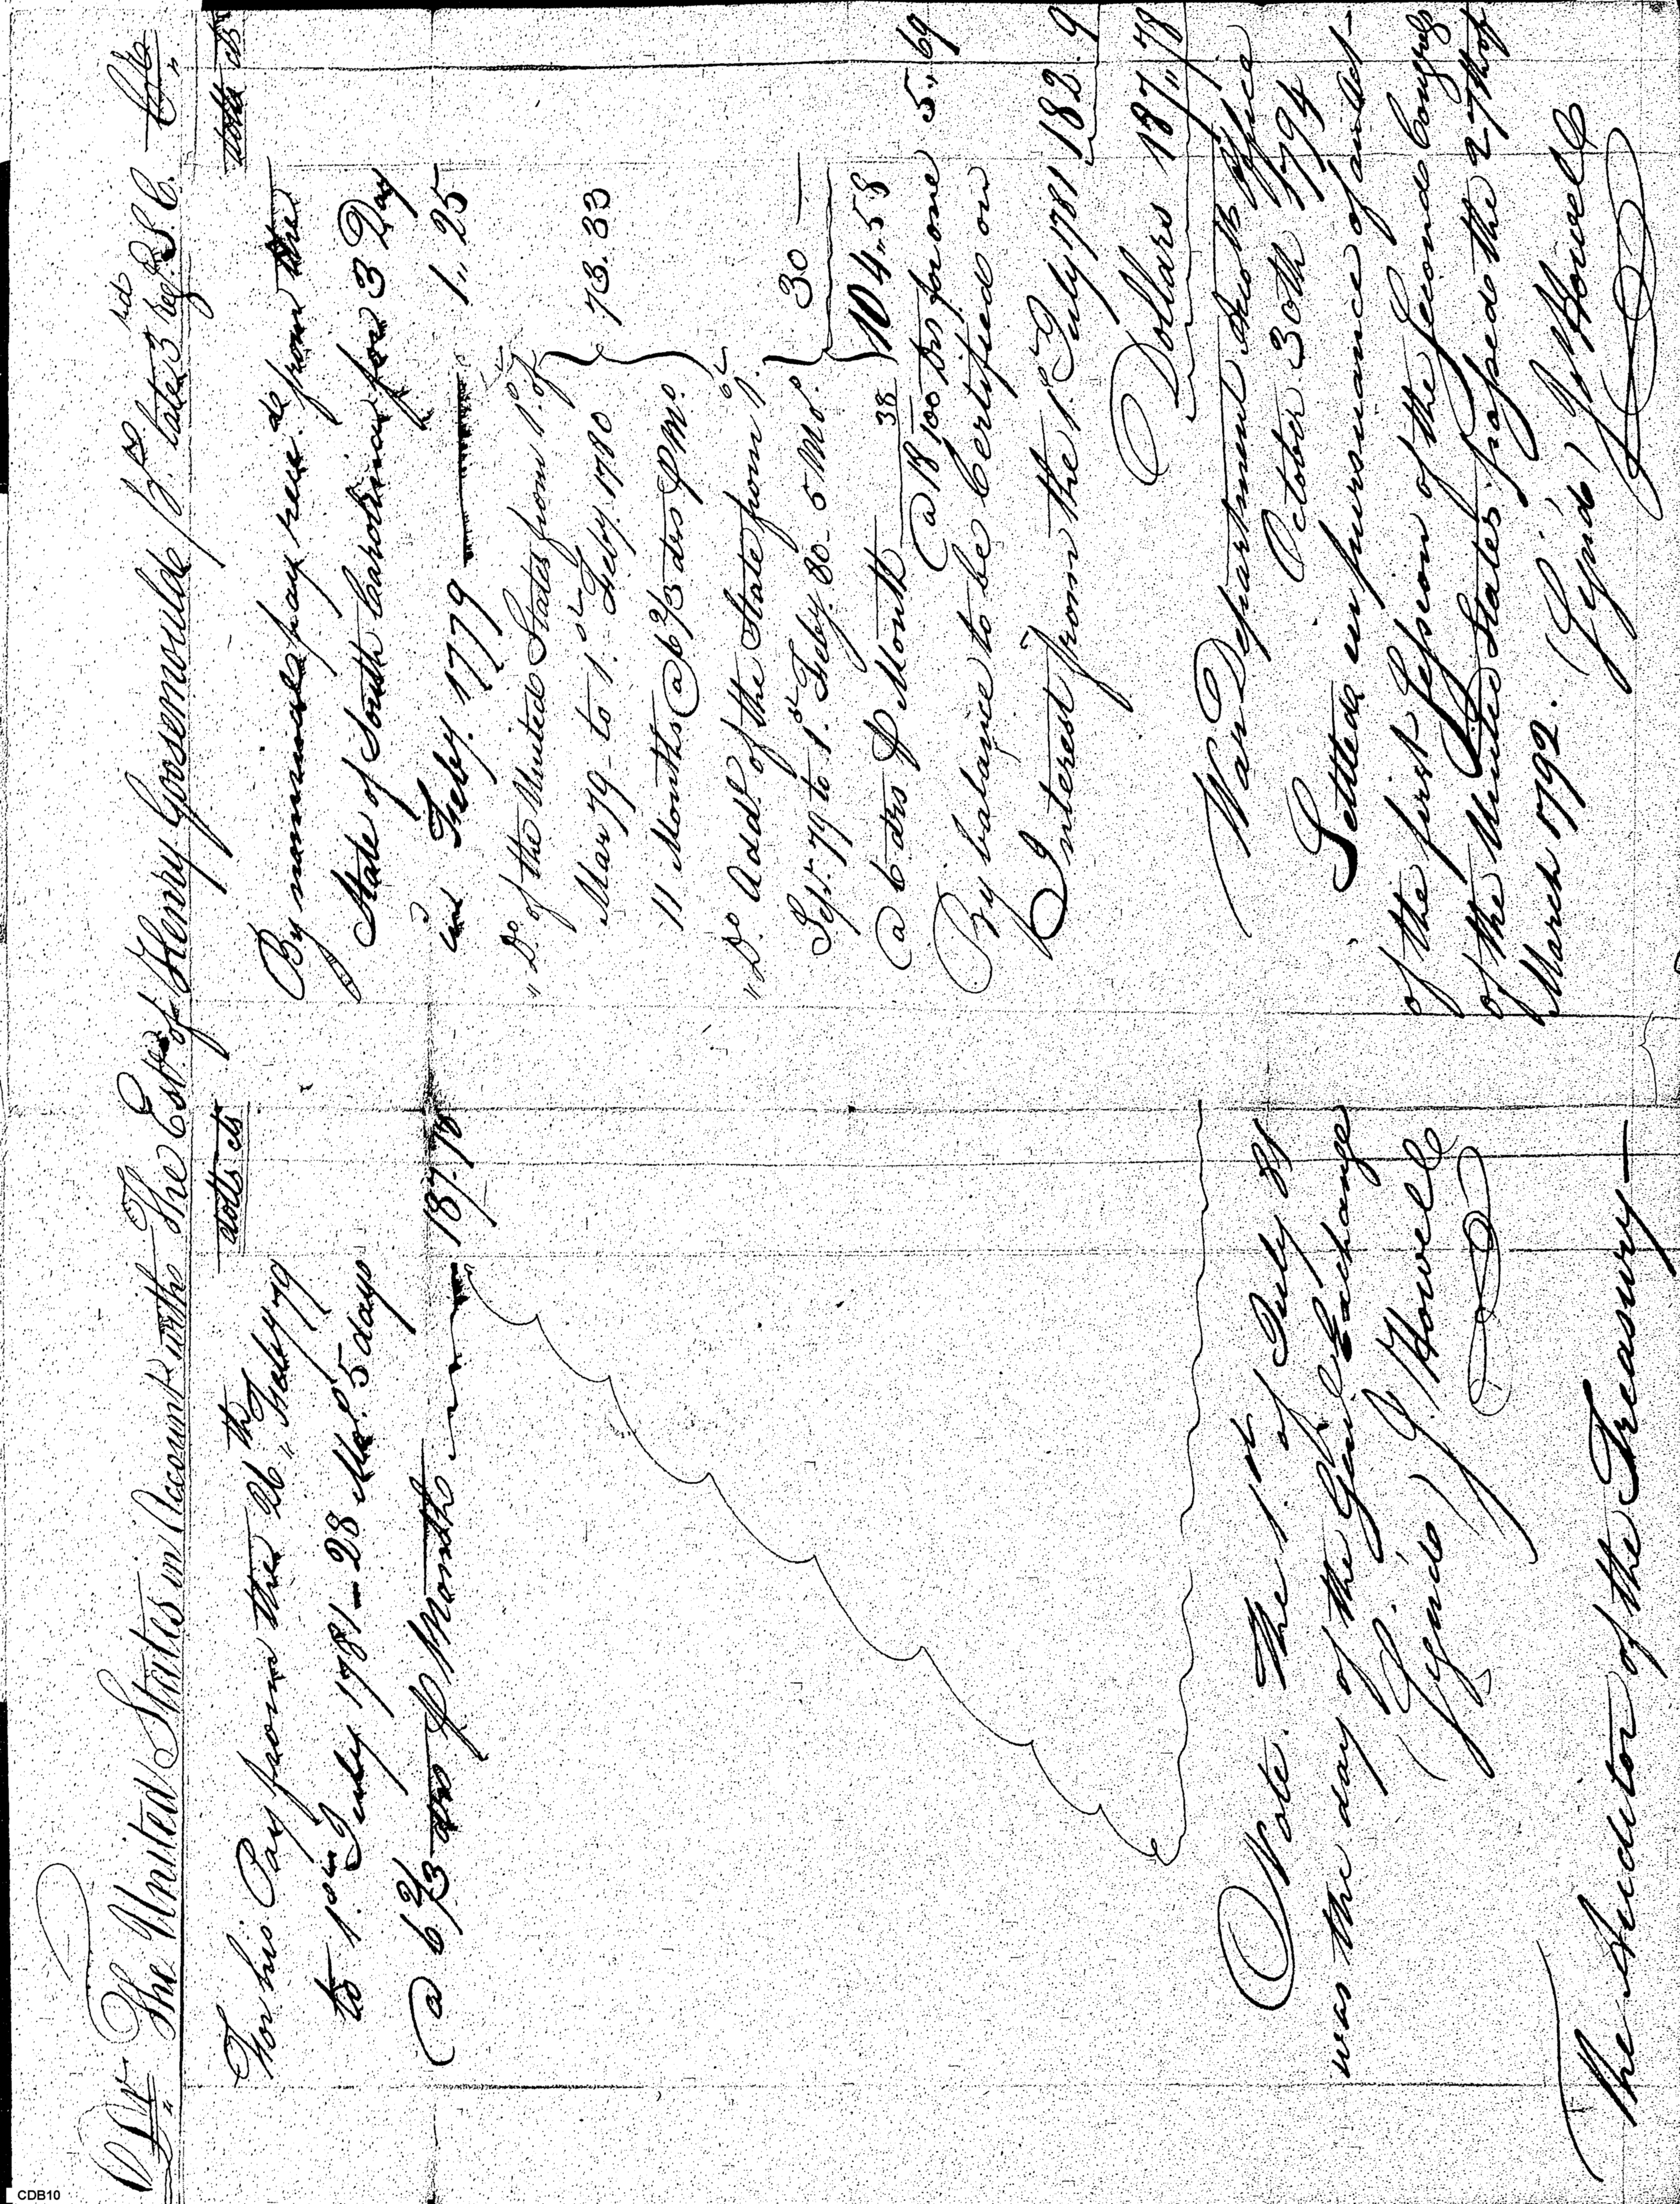 Dr. The United States in Account with The Est. of Henry Goosemoulde pd. late 3rd reg. S C. Cr.
dolls cts
For his Pay from the 26th Feby 79
to 1st July 1781 — 28 Mos. 5 days
@ 6 2/3 drs ⅌ Month — 187.78
Note. The 1st of July 81
was the day of the Genl. Exchange
(Sign'd) J. Howell
The Auditor of the Treasury —
dolls cts
By nominal pay recd. from the
State of South Carolina for 3 Day
in Feby. 1779 — 1,,25
" Do. of the United States from 1st of
Mar 79 - to 1st Feby. 1780
11 Months @ 6 2/3 drs ⅌ Mo. } 73.33
" Do. Addl. of the State from 1st
Sept. 79 to 1st Feby. 80 - 5 Mos.
@ 6 drs ⅌ Month } 30 —
104,,58
@ 18 38/100 drs for one 5,,69
By balance to be Certified on
Interest from the 1st July 1781 182.9
Dollars 187,,78
War Department Accots. Office
October 30th 1794
Settled in pursuance of an Act
of the first Session of the Second Congress
of the United States passed the 27th of
March 1792.
(Sign'd) J Howell
CDB10